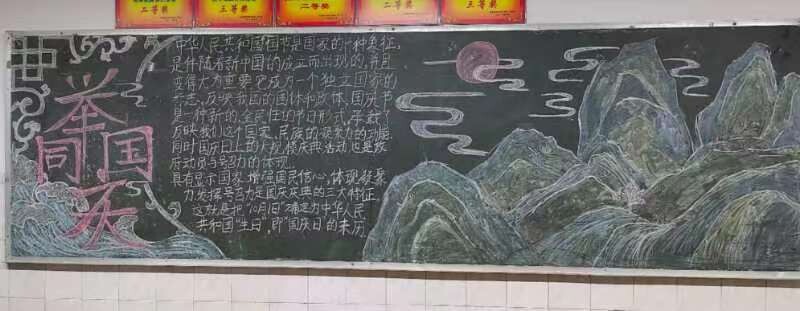 二等奖
三等奖
二等奖
三等奖
举国同庆
中华人民共和国国节是国家的一种象征,
是伴随着新中国的成立而出现的,并且
变得尤为重要它成为一个独立国家的
标志,反映我国的国体和政体,国庆节
是一种新的、全民性的节日形式,承载了
反映我们这个国家、民族的凝聚力的功能
同时国庆日上的大规模庆典活动也是政
府动员与号召力的体现。
具有显示国家,增强国民信心,体现凝聚
力,发挥号召力是国庆庆典的三大特征,
这就是把"10月1日"确定为中华人民
共和国"生日",即"国庆日"的来历